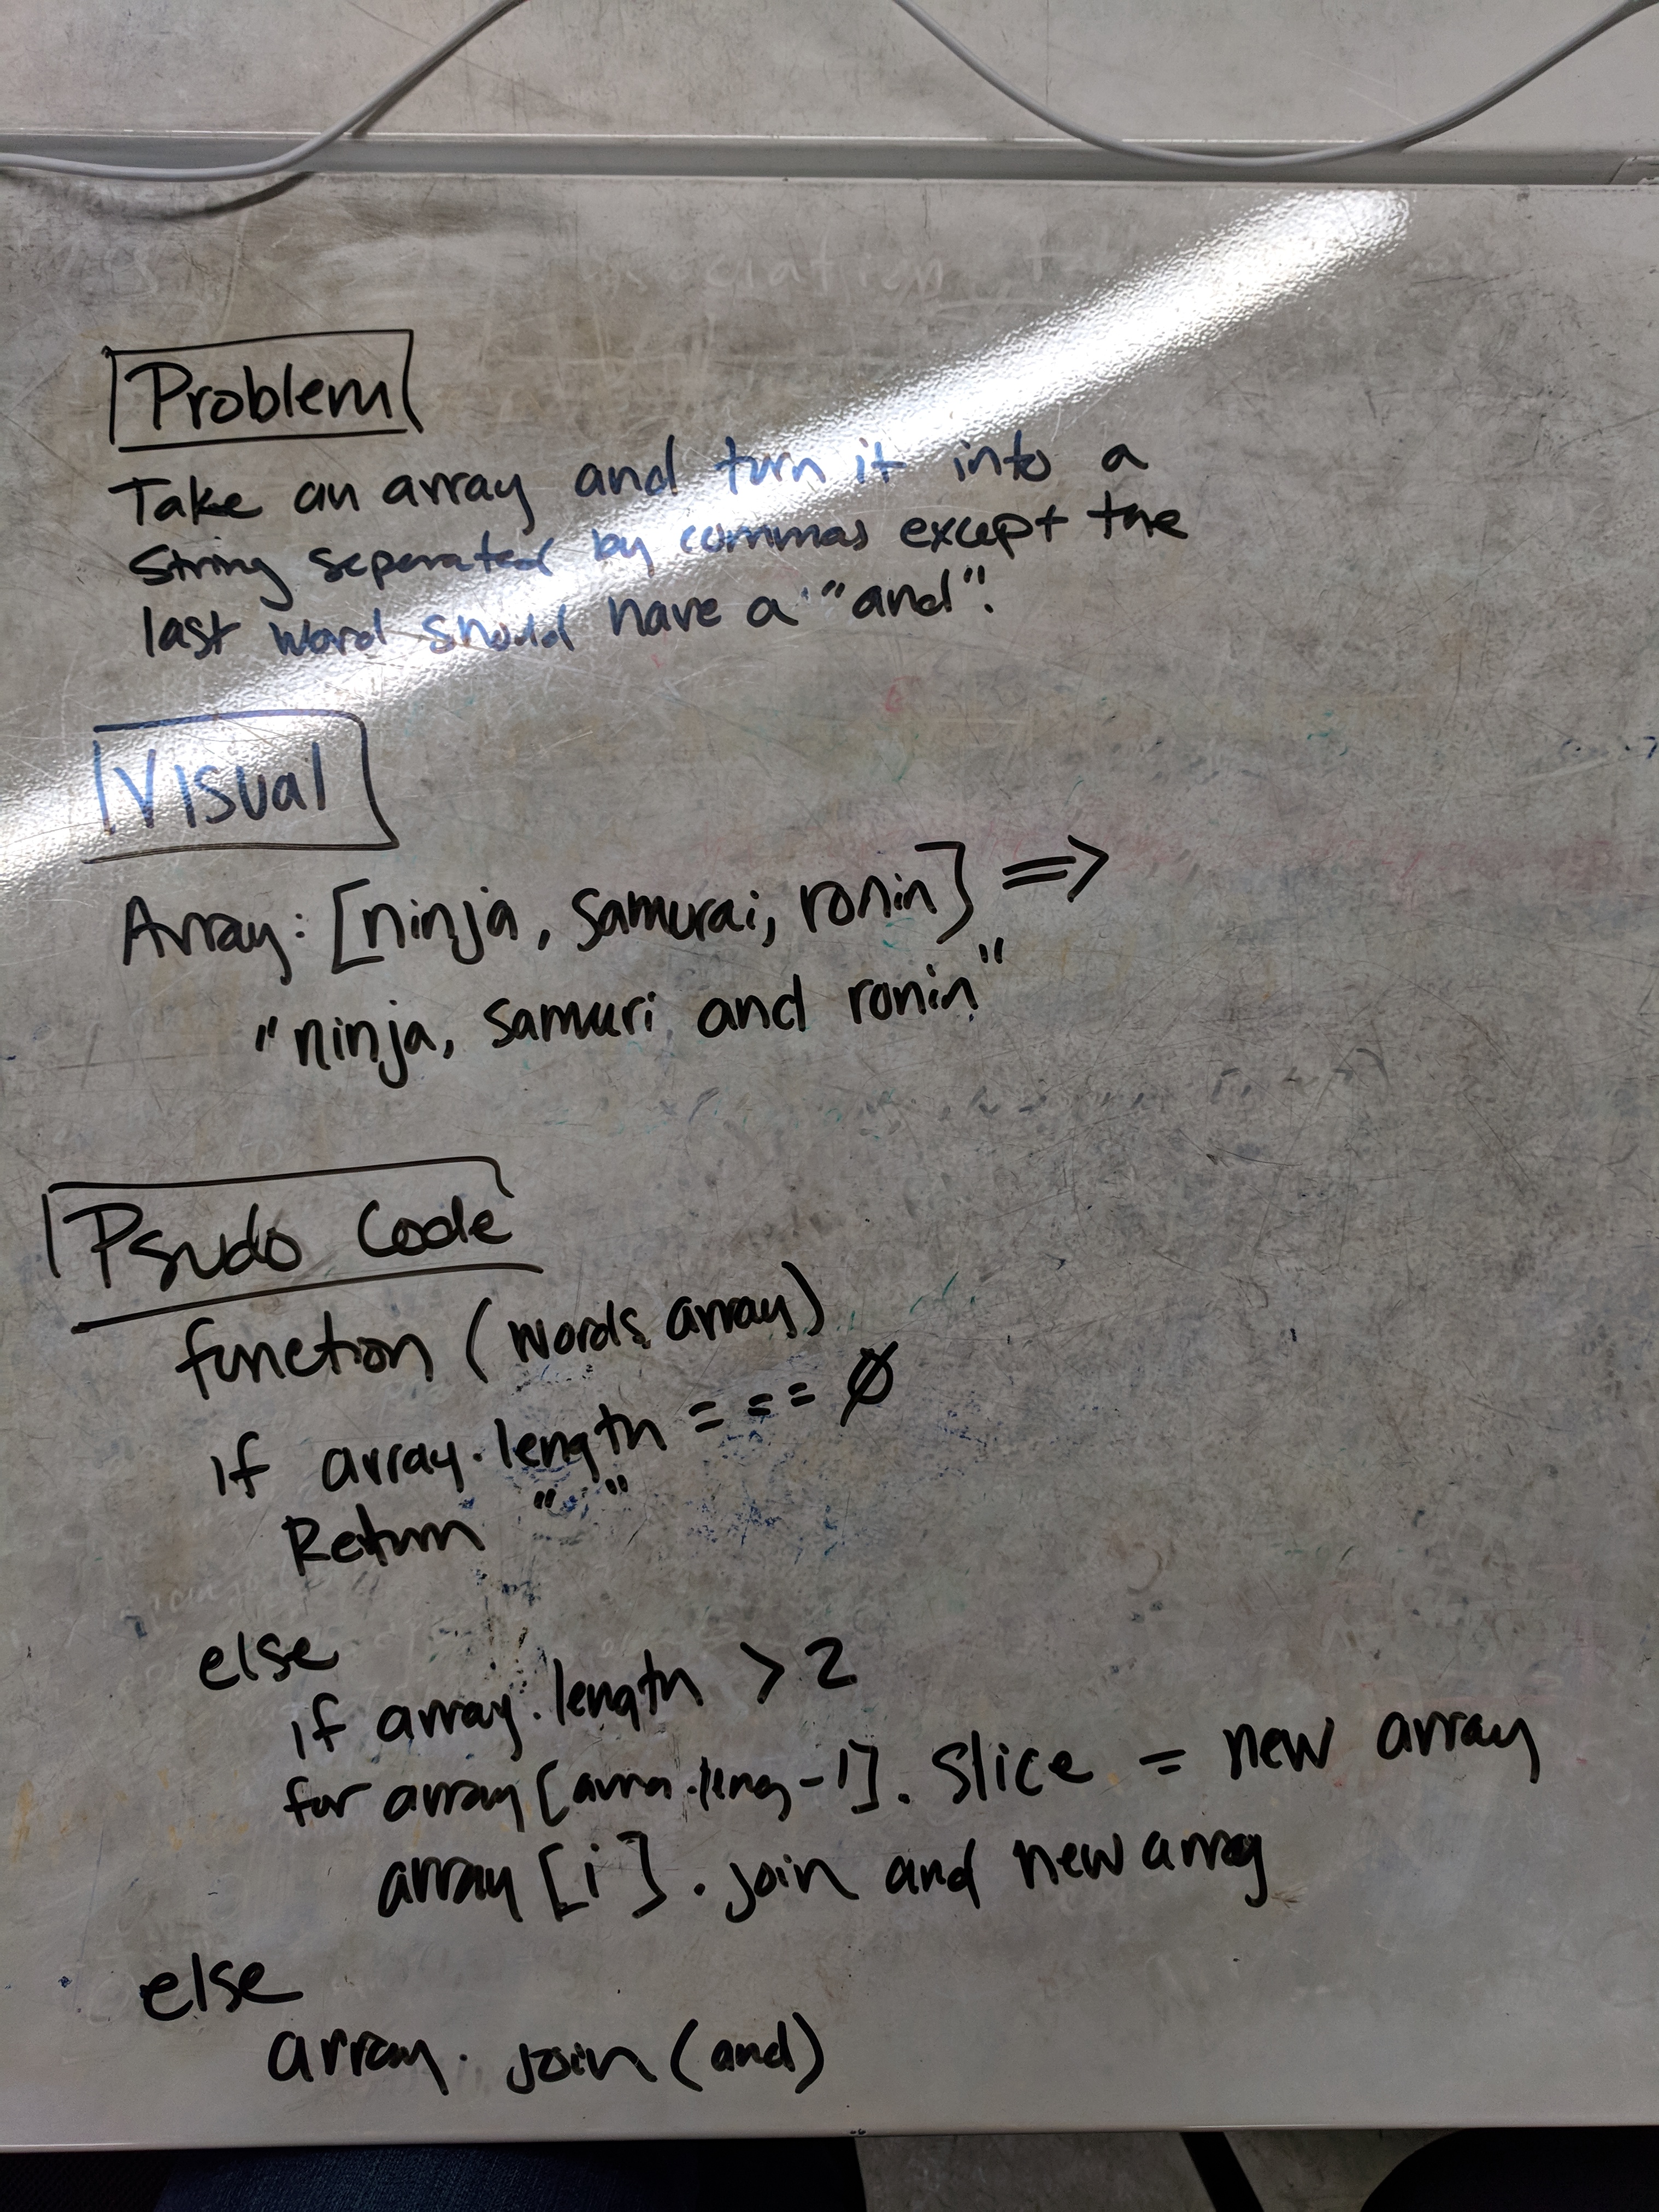 Problem
Take an array and turn it into a
string seperated by commas except the
last word should have a "and".
Visual
Array: [ninja, samurai, ronin] =>
"ninja, samuri and ronin"
Psudo Code
function (words array)
if array.length === 0
Return " "
else
if array.length > 2
for array [arra.leng-1]. slice = new array
array [i]. join and new array
else
array. join (and)